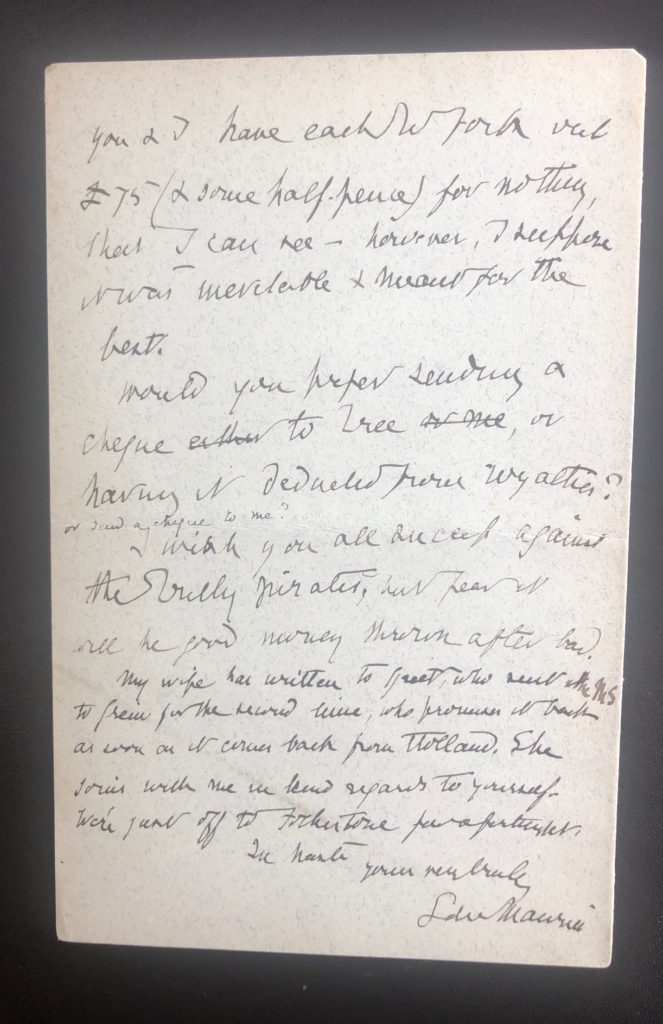 you & I have each to fork out
£75 (& some half-pence) for nothing,
that I can see – however, I suppose
it was inevitable & meant for the
best.
Would you prefer sending a
cheque either to Tree or me, or
having it deducted from royalties?
or send a cheque to me?
I wish you all success against
the Trilby pirates, but fear it
will be good money thrown after bad.
My wife has written to Greet, who sent the MS
to Grein for the second time, who promises it back
as soon as it comes back from Holland. She
joins with me in kind regards to yourself.
We're just off to Folkestone for a fortnight.
In haste
yours very truly
G du Maurier